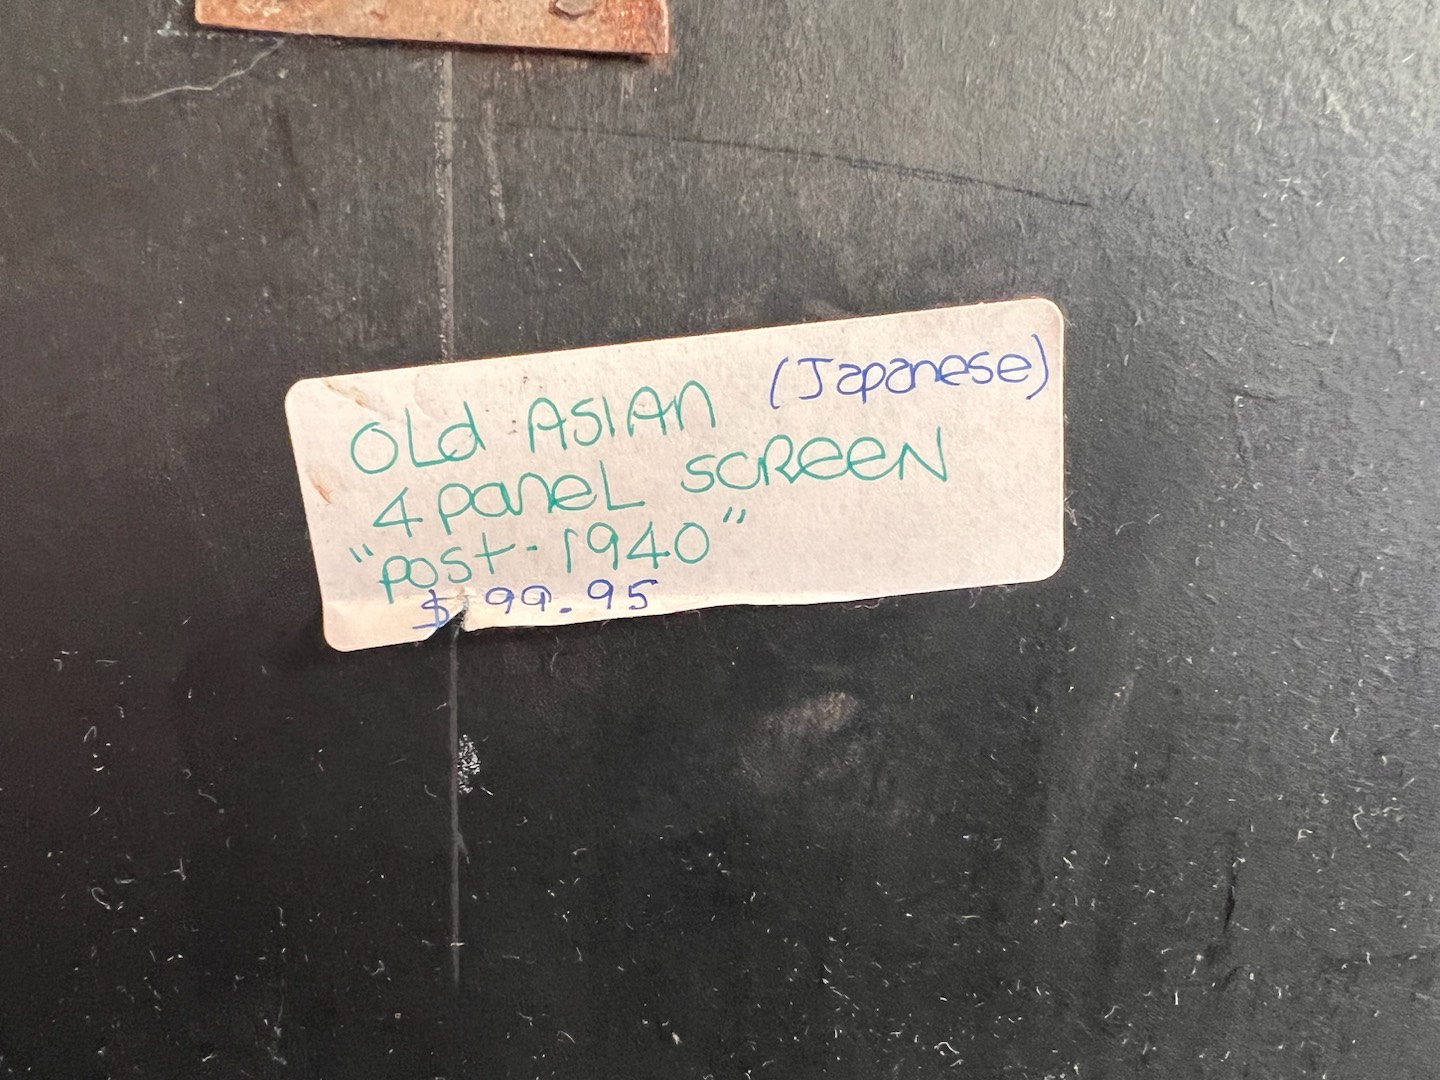 OLd ASIAN (Japanese)
4 PaneL SCREEN
"POST-1940"
$199.95